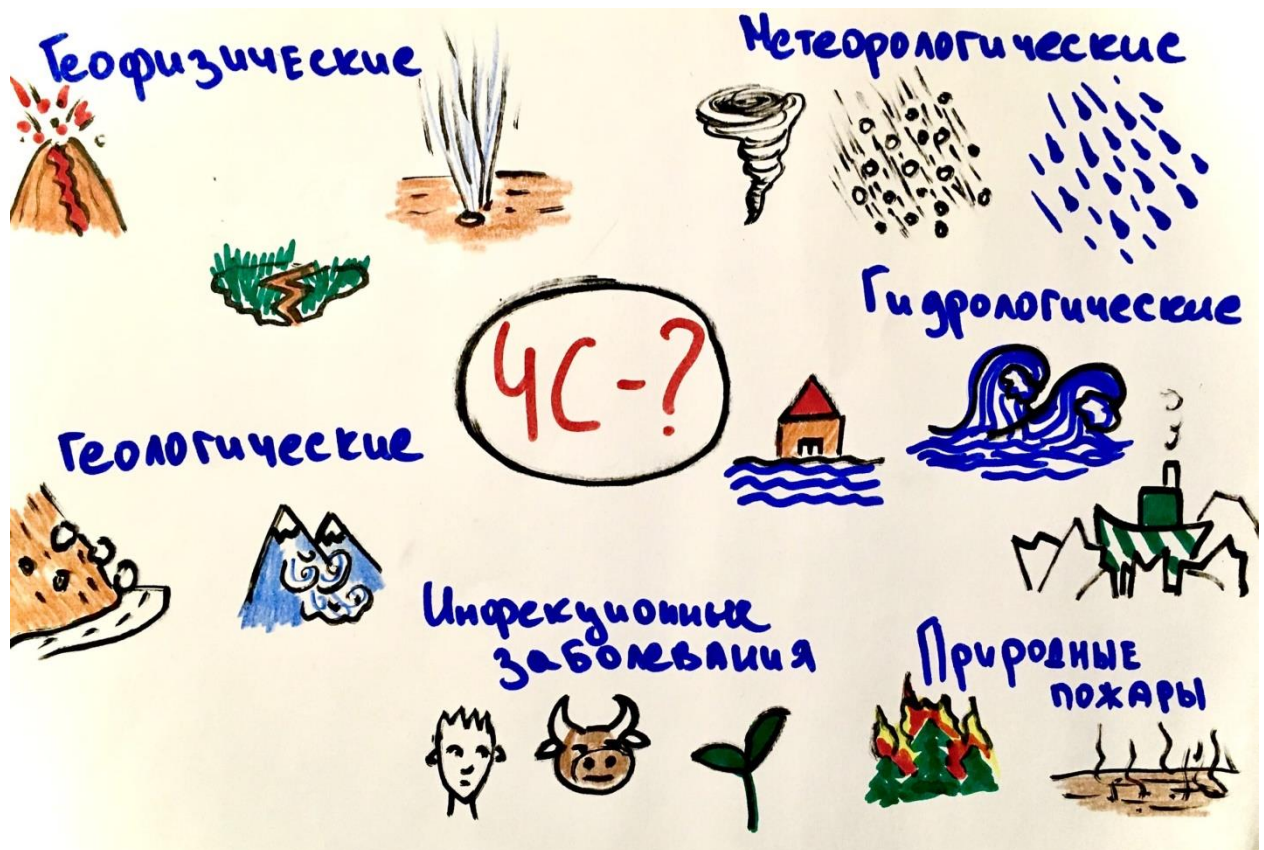 Геофизические
Метеорологические
Гидрологические
ЧС-?
Геологические
Инфекционные
заболевания
Природные
пожары